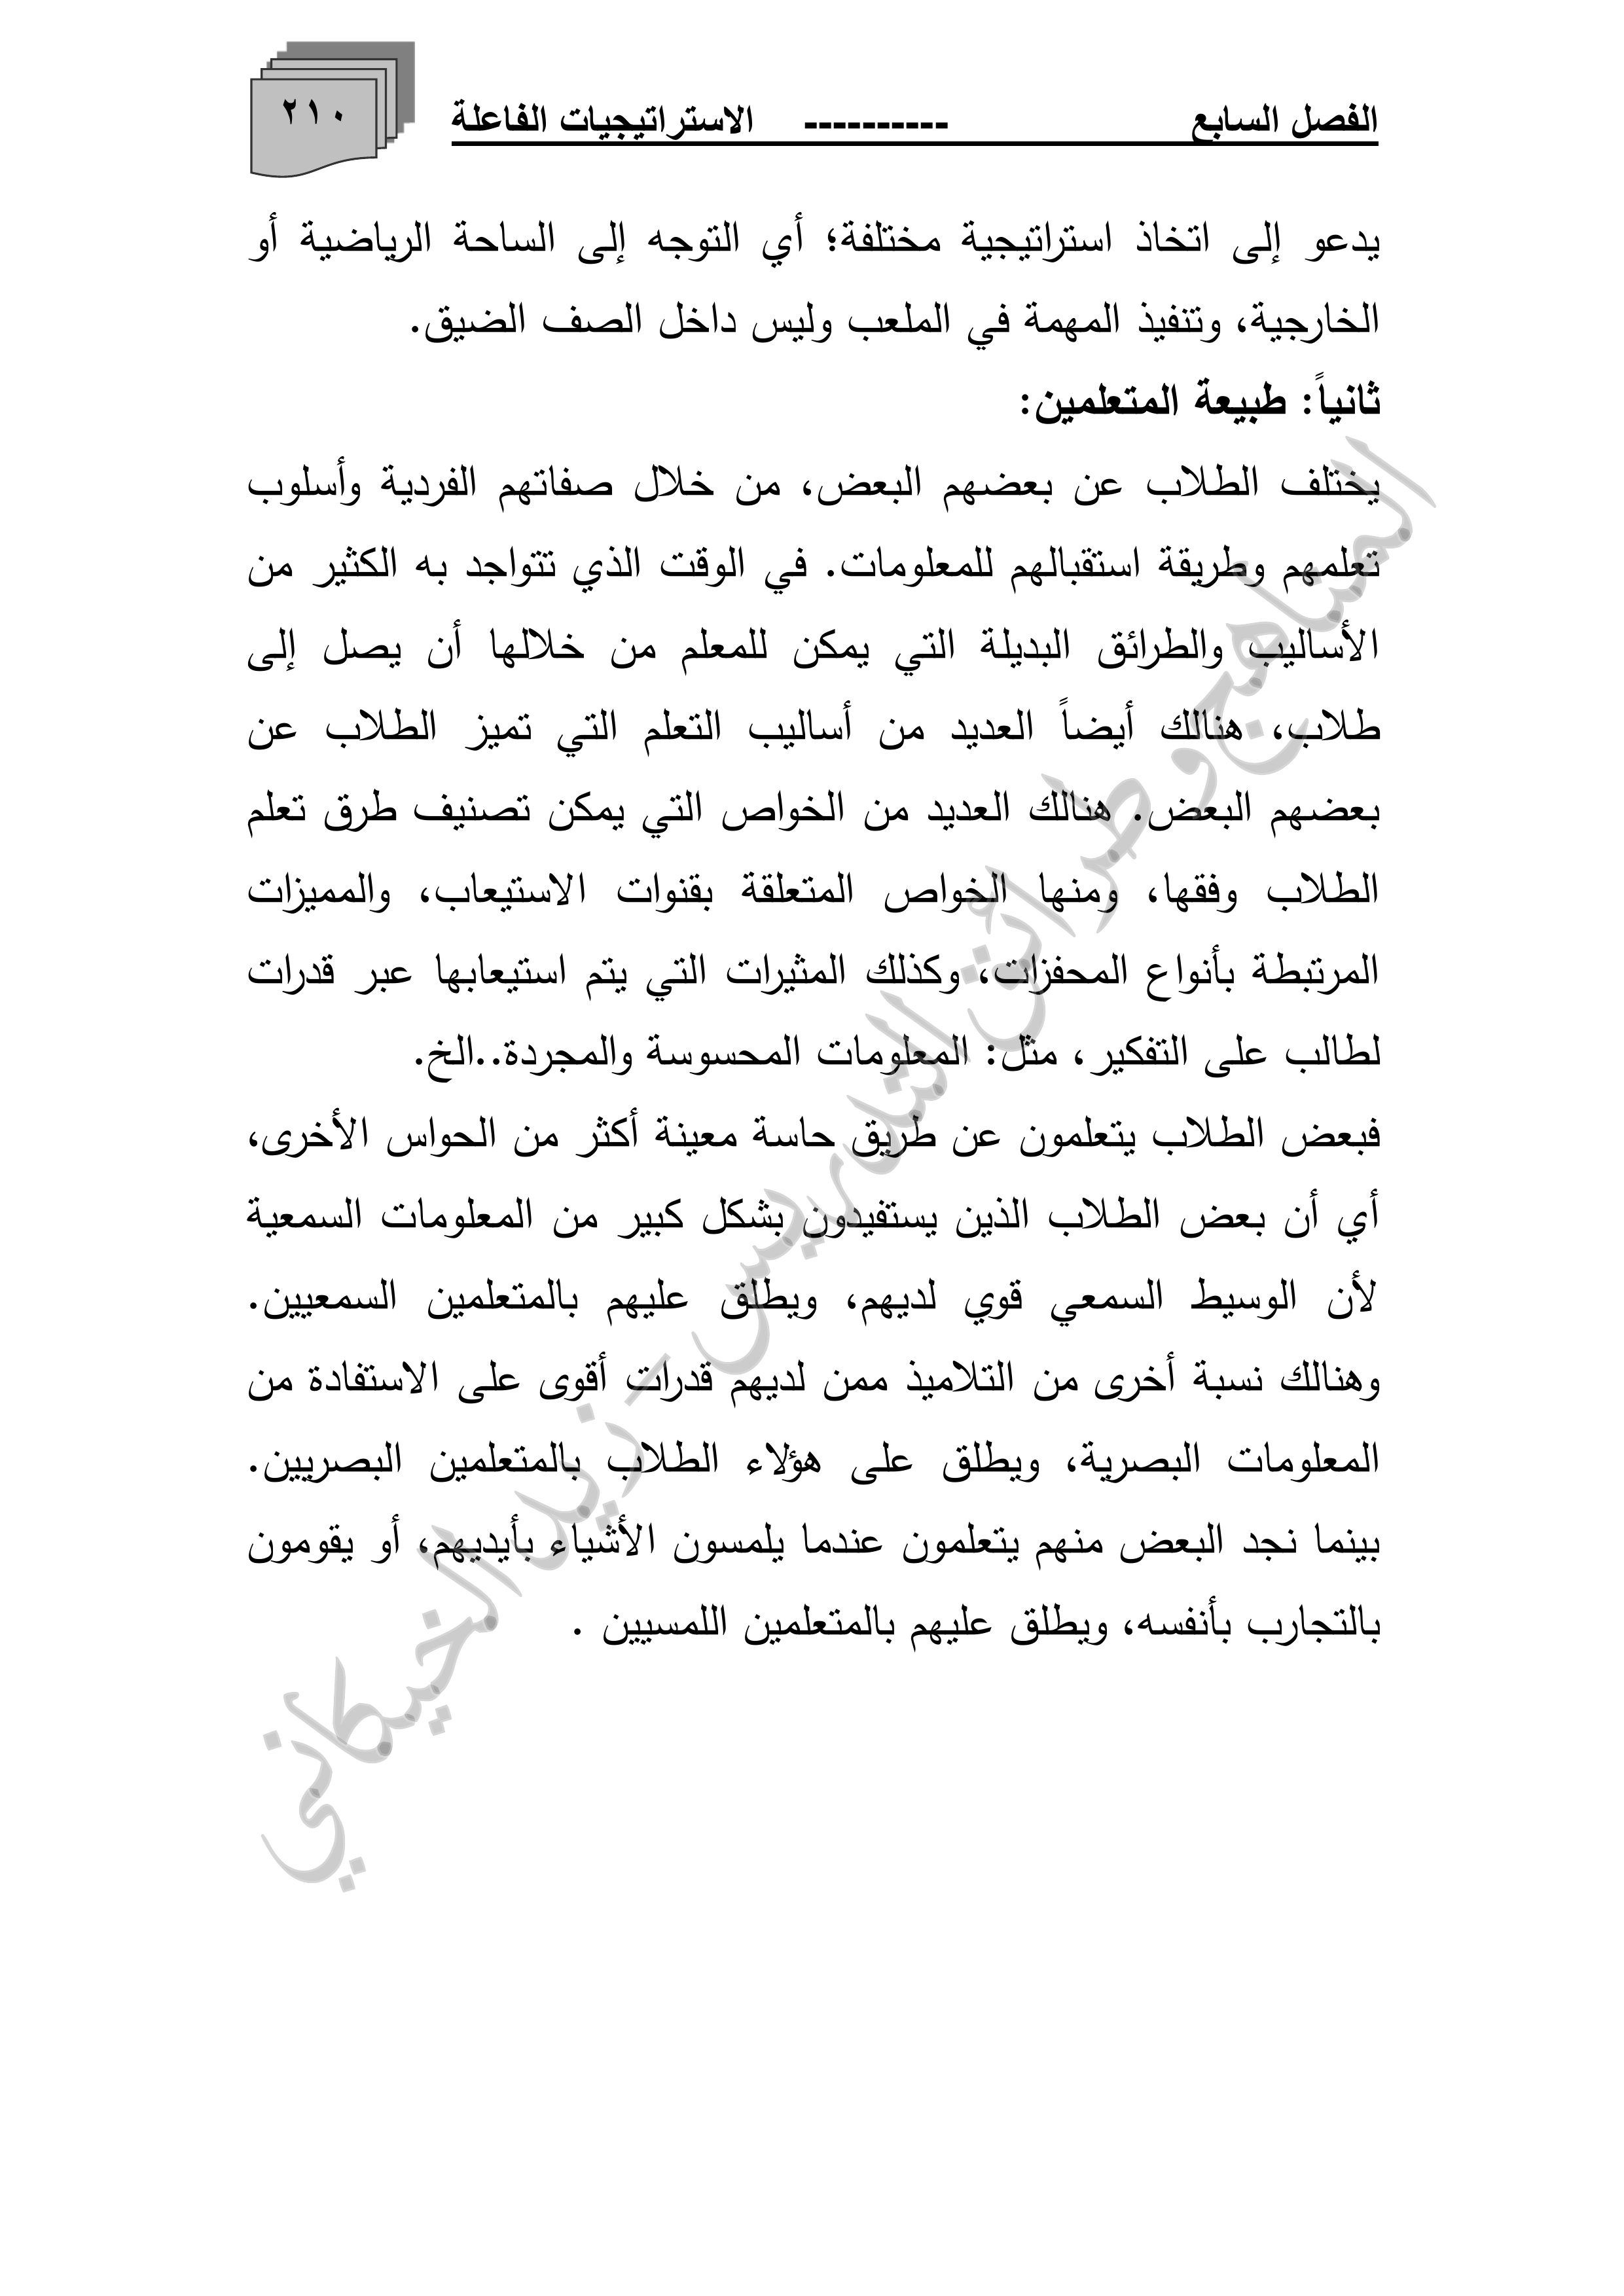 الفصل السابع ---------- الاستراتيجيات الفاعلة
٢١٠
يدعو إلى اتخاذ استراتيجية مختلفة؛ أي التوجه إلى الساحة الرياضية أو
الخارجية، وتنفيذ المهمة في الملعب وليس داخل الصف الضيق.
ثانياً: طبيعة المتعلمين:
يختلف الطلاب عن بعضهم البعض، من خلال صفاتهم الفردية وأسلوب
تعلمهم وطريقة استقبالهم للمعلومات. في الوقت الذي تتواجد به الكثير من
الأساليب والطرائق البديلة التي يمكن للمعلم من خلالها أن يصل إلى
طلاب، هنالك أيضاً العديد من أساليب التعلم التي تميز الطلاب عن
بعضهم البعض. هنالك العديد من الخواص التي يمكن تصنيف طرق تعلم
الطلاب وفقها، ومنها الخواص المتعلقة بقنوات الاستيعاب، والمميزات
المرتبطة بأنواع المحفزات، وكذلك المثيرات التي يتم استيعابها عبر قدرات
لطالب على التفكير، مثل: المعلومات المحسوسة والمجردة..الخ.
فبعض الطلاب يتعلمون عن طريق حاسة معينة أكثر من الحواس الأخرى،
أي أن بعض الطلاب الذين يستفيدون بشكل كبير من المعلومات السمعية
لأن الوسيط السمعي قوي لديهم، ويطلق عليهم بالمتعلمين السمعيين.
وهنالك نسبة أخرى من التلاميذ ممن لديهم قدرات أقوى على الاستفادة من
المعلومات البصرية، ويطلق على هؤلاء الطلاب بالمتعلمين البصريين.
بينما نجد البعض منهم يتعلمون عندما يلمسون الأشياء بأيديهم، أو يقومون
بالتجارب بأنفسه، ويطلق عليهم بالمتعلمين اللمسيين .
المناهج وطرائق التدريس - زيد الخيكاني